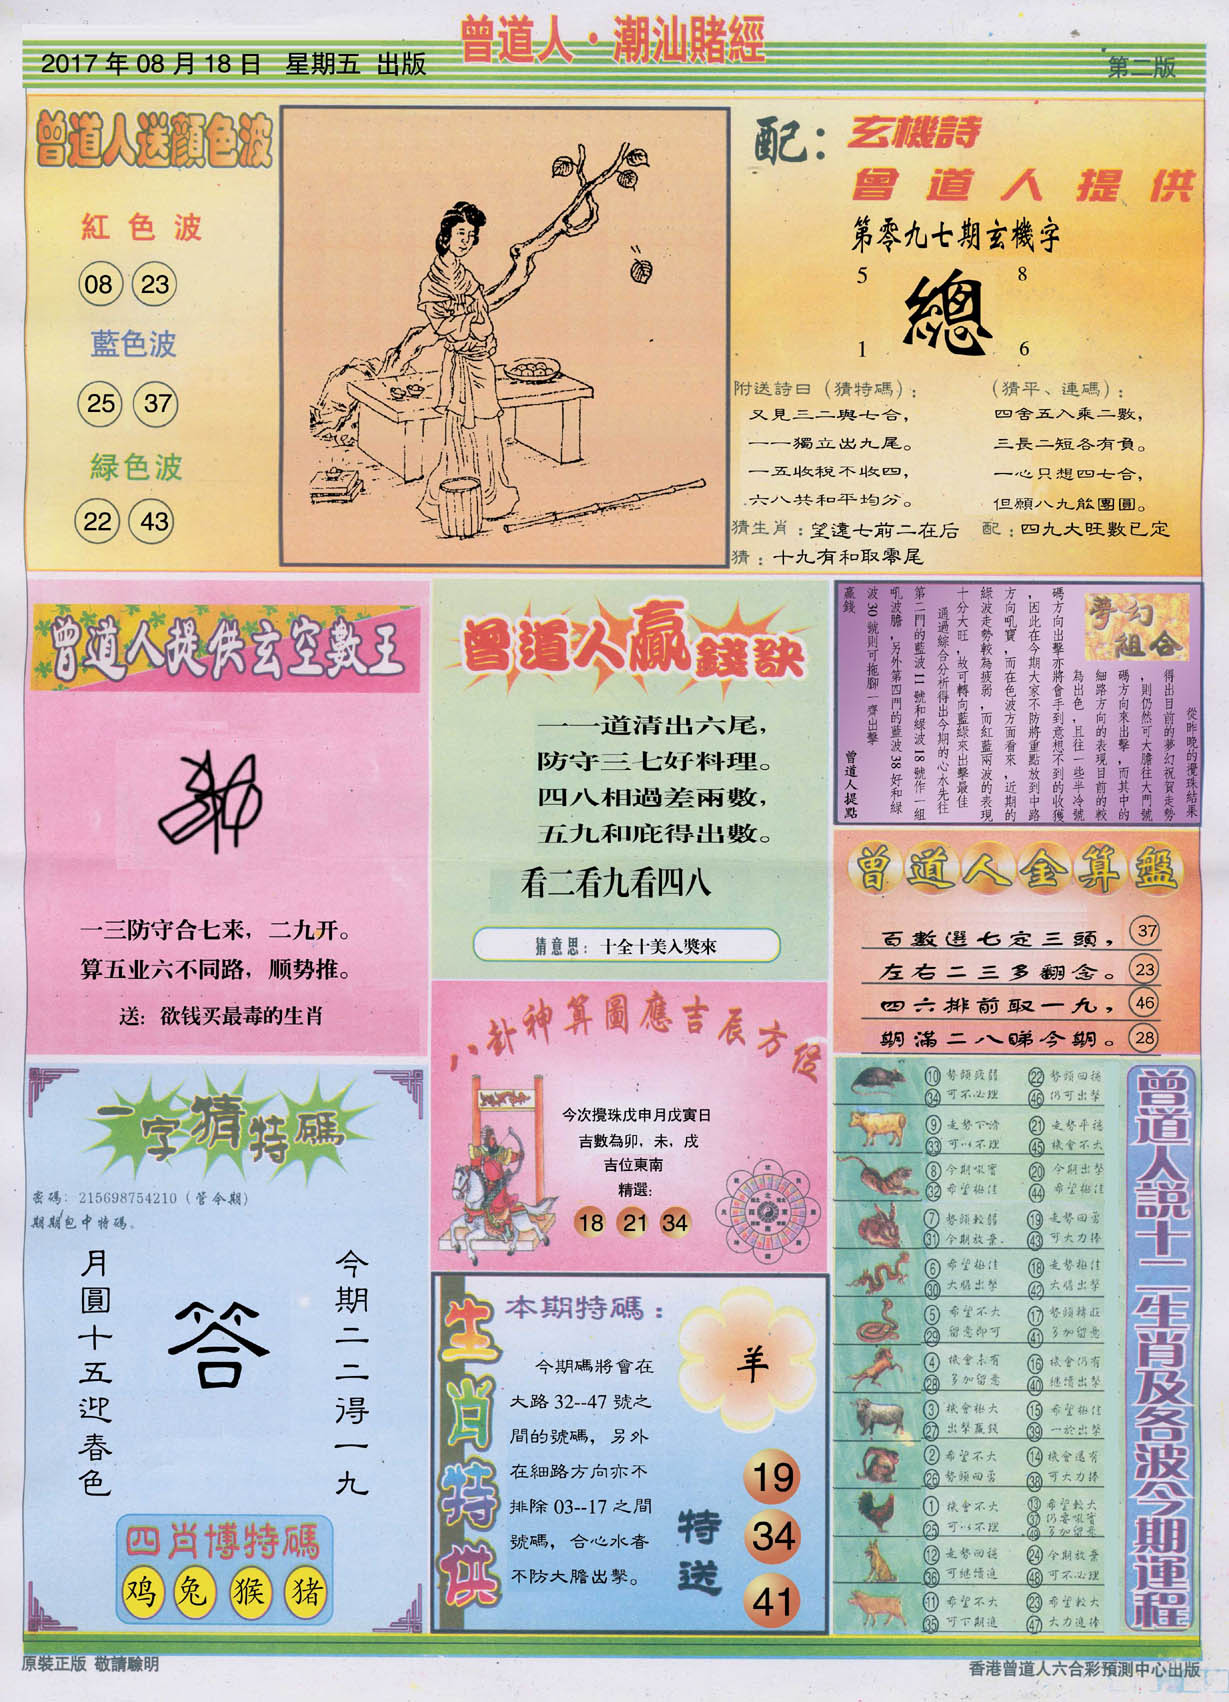 曾道人·潮汕賭經
2017年08月18日 星期五 出版
第二版
曾道人送顏色波
紅色波
08 23
藍色波
25 37
緑色波
22 43
配：玄機詩
曾道人提供
第零九七期玄機字
5 8
總
1 6
附送詩曰（猜特碼）：
又見三二與七合，
一一獨立出九尾。
一五收稅不收四，
六八共和平均分。
（猜平、連碼）：
四舍五入乘二數，
三長二短各有負。
一心只想四七合，
但願八九能團圓。
猜生肖：望遠七前二在后
配：四九大旺數已定
猜：十九有和取零尾
曾道人提供玄空數王
一三防守合七来，二九开。
算五业六不同路，顺势推。
送：欲钱买最毒的生肖
曾道人贏錢訣
一一道清出六尾，
防守三七好料理。
四八相過差兩數，
五九和庇得出數。
看二看九看四八
猜意思：十全十美入獎來
夢幻組合
從昨晚的攪珠結果
得出目前的夢幻祝賀走勢
，則仍然可大膽往大門號
碼方向來出擊，而其中的
細路方向的表現目前的較
為出色，且往一些半冷號
碼方向出擊亦將會手到意想不到的收獲
，因此在今期大家不防將重點放到中路
方向吼寶，而在色波方面看來，近期的
綠波走勢較為疲弱，而紅藍兩波的表現
十分大旺，故可轉向藍綠來出擊最佳
通過綜合分析得出今期的心水先往
第二門的藍波11號和綠波18號作一組
吼波膽，另外第四門的藍波38好和綠
波30號則可拖腳一齊出擊
贏錢
曾道人提點
曾道人金算盤
百數選七定三頭， 37
左右二三多翻念。 23
四六排前取一九， 46
期滿二八睇今期。 28
八卦神算圖應吉辰方位
今次攪珠戊申月戊寅日
吉數為卯，未，戌
吉位東南
精選:
18 21 34
一字猜特碼
密碼：215698754210（管令期）
期期包中特碼。
今期二二得一九
答
月圓十五迎春色
四肖博特碼
鸡 兔 猴 猪
生肖特供
本期特碼：
今期碼將會在
大路32--47號之
間的號碼，另外
在細路方向亦不
排除03--17之間
號碼，合心水者
不防大膽出擊。
羊
特送
19
34
41
曾道人説十二生肖及各波今期運程
10 勢頭疲弱 22 勢頭回穩
34 可不必理 46 仍可出擊
9 走勢不濟 21 走勢平穩
33 可以不理 45 機會不大
8 今期吼寶 20 今期出擊
32 希望極佳 44 希望極佳
7 勢頭較弱 19 走勢回勇
31 今期放棄 43 可大力捧
6 希望極佳 18 走勢極佳
30 大膽出擊 42 大膽出擊
5 希望不大 17 勢頭轉旺
29 留意即可 41 多加留意
4 機會未有 16 機會仍有
28 多加留意 40 繼續出擊
3 機會極大 15 希望極佳
27 出擊贏錢 39 一於出擊
2 希望不大 14 機會還有
26 勢頭回勇 38 可大力捧
1 機會不大 13 希望較大
25 可以不理 37 仍要吼實
49 多加留意
12 走勢回穩 24 今期放棄
36 可繼續追 48 可不必理
11 希望不大 23 希望較大
35 可下期追 47 大力追捧
原裝正版 敬請驗明
香港曾道人六合彩預測中心出版